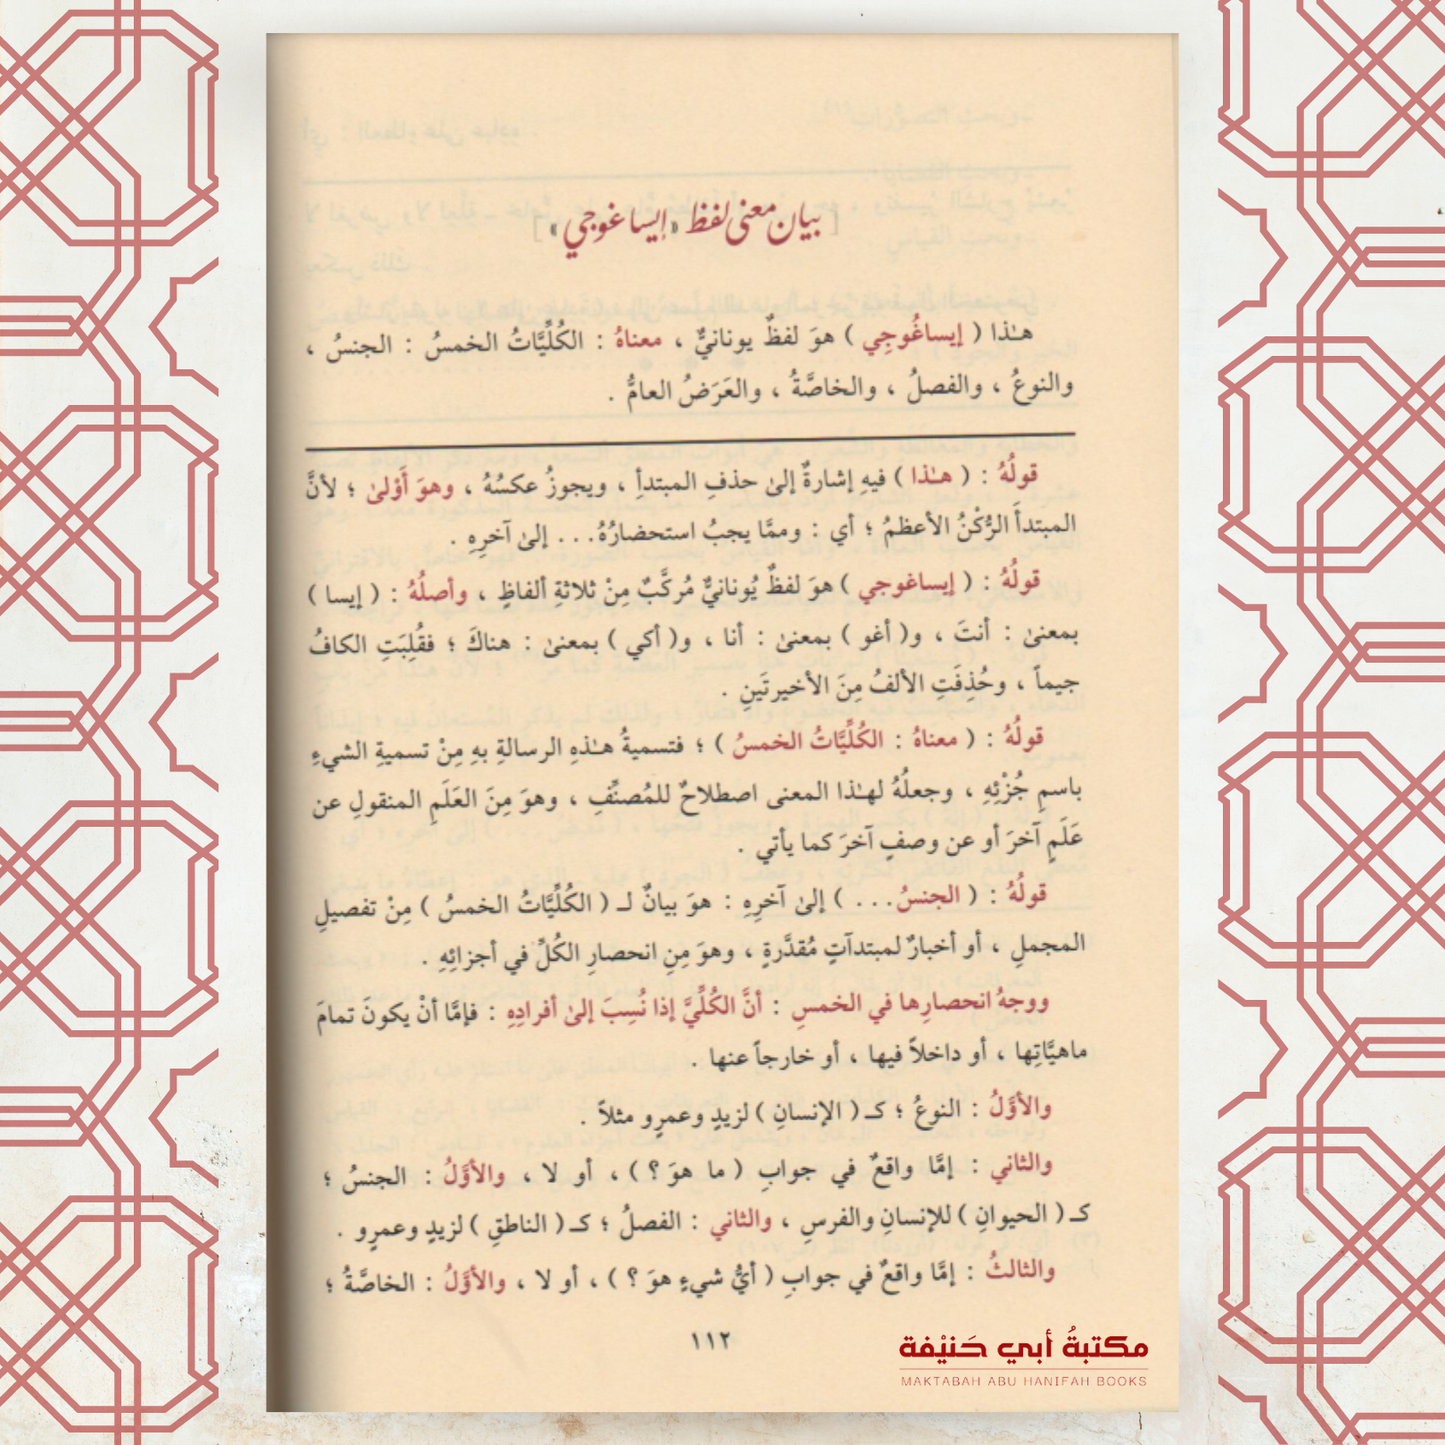 [ بيان معنى لفظ «إيساغوجي» ]
هـٰذا ( إيساغُوجِي ) هوَ لفظٌ يونانيٌّ ، معناهُ : الكُلِّيَّاتُ الخمسُ : الجنسُ ،
والنوعُ ، والفصلُ ، والخاصَّةُ ، والعَرَضُ العامُّ .
قولُهُ : ( هـٰذا ) فيهِ إشارةٌ إلىٰ حذفِ المبتدأِ ، ويجوزُ عكسُهُ ، وهوَ أَوْلىٰ ؛ لأنَّ
المبتدأَ الرُّكْنُ الأعظمُ ؛ أي : وممَّا يجبُ استحضارُهُ... إلىٰ آخرِهِ .
قولُهُ : ( إيساغوجي ) هوَ لفظٌ يُونانيٌّ مُركَّبٌ مِنْ ثلاثةِ ألفاظٍ ، وأصلُهُ : ( إيسا )
بمعنىٰ : أنتَ ، و( أغو ) بمعنىٰ : أنا ، و( أكي ) بمعنىٰ : هناكَ ؛ فقُلِبَتِ الكافُ
جيماً ، وحُذِفَتِ الألفُ مِنَ الأخيرتَينِ .
قولُهُ : ( معناهُ : الكُلِّيَّاتُ الخمسُ ) ؛ فتسميةُ هـٰذهِ الرسالةِ بهِ مِنْ تسميةِ الشيءِ
باسمِ جُزْئِهِ ، وجعلُهُ لهـٰذا المعنى اصطلاحٌ للمُصنِّفِ ، وهوَ مِنَ العَلَمِ المنقولِ عن
عَلَمٍ آخرَ أو عن وصفٍ آخرَ كما يأتي .
قولُهُ : ( الجنسُ... ) إلىٰ آخرِهِ : هوَ بيانٌ لـ ( الكُلِّيَّاتُ الخمسُ ) مِنْ تفصيلِ
المجملِ ، أو أخبارٌ لمبتدآتٍ مُقدَّرةٍ ، وهوَ مِنِ انحصارِ الكُلِّ في أجزائِهِ .
ووجهُ انحصارِها في الخمسِ : أنَّ الكُلِّيَّ إذا نُسِبَ إلىٰ أفرادِهِ : فإمَّا أنْ يكونَ تمامَ
ماهيَّاتِها ، أو داخلاً فيها ، أو خارجاً عنها .
والأوَّلُ : النوعُ ؛ كـ ( الإنسانِ ) لزيدٍ وعمرٍو مثلاً .
والثاني : إمَّا واقعٌ في جوابِ ( ما هوَ ؟ ) ، أو لا ، والأوَّلُ : الجنسُ ؛
كـ ( الحيوانِ ) للإنسانِ والفرسِ ، والثاني : الفصلُ ؛ كـ ( الناطقِ ) لزيدٍ وعمرٍو .
والثالثُ : إمَّا واقعٌ في جوابِ ( أيُّ شيءٍ هوَ ؟ ) ، أو لا ، والأوَّلُ : الخاصَّةُ ؛
١١٢
مكتبةُ أبي حَنيْفة
MAKTABAH ABU HANIFAH BOOKS